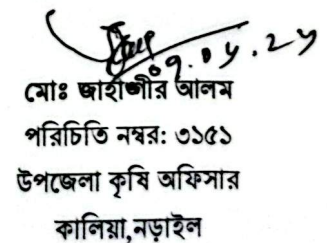 ০৭.০৮.২৪
মোঃ জাহাঙ্গীর আলম
পরিচিতি নম্বর: ৩১৫১
উপজেলা কৃষি অফিসার
কালিয়া,নড়াইল